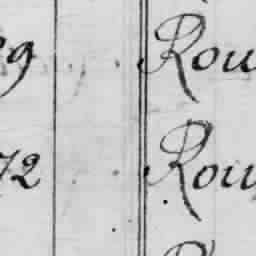 29 Rou
72 Rou